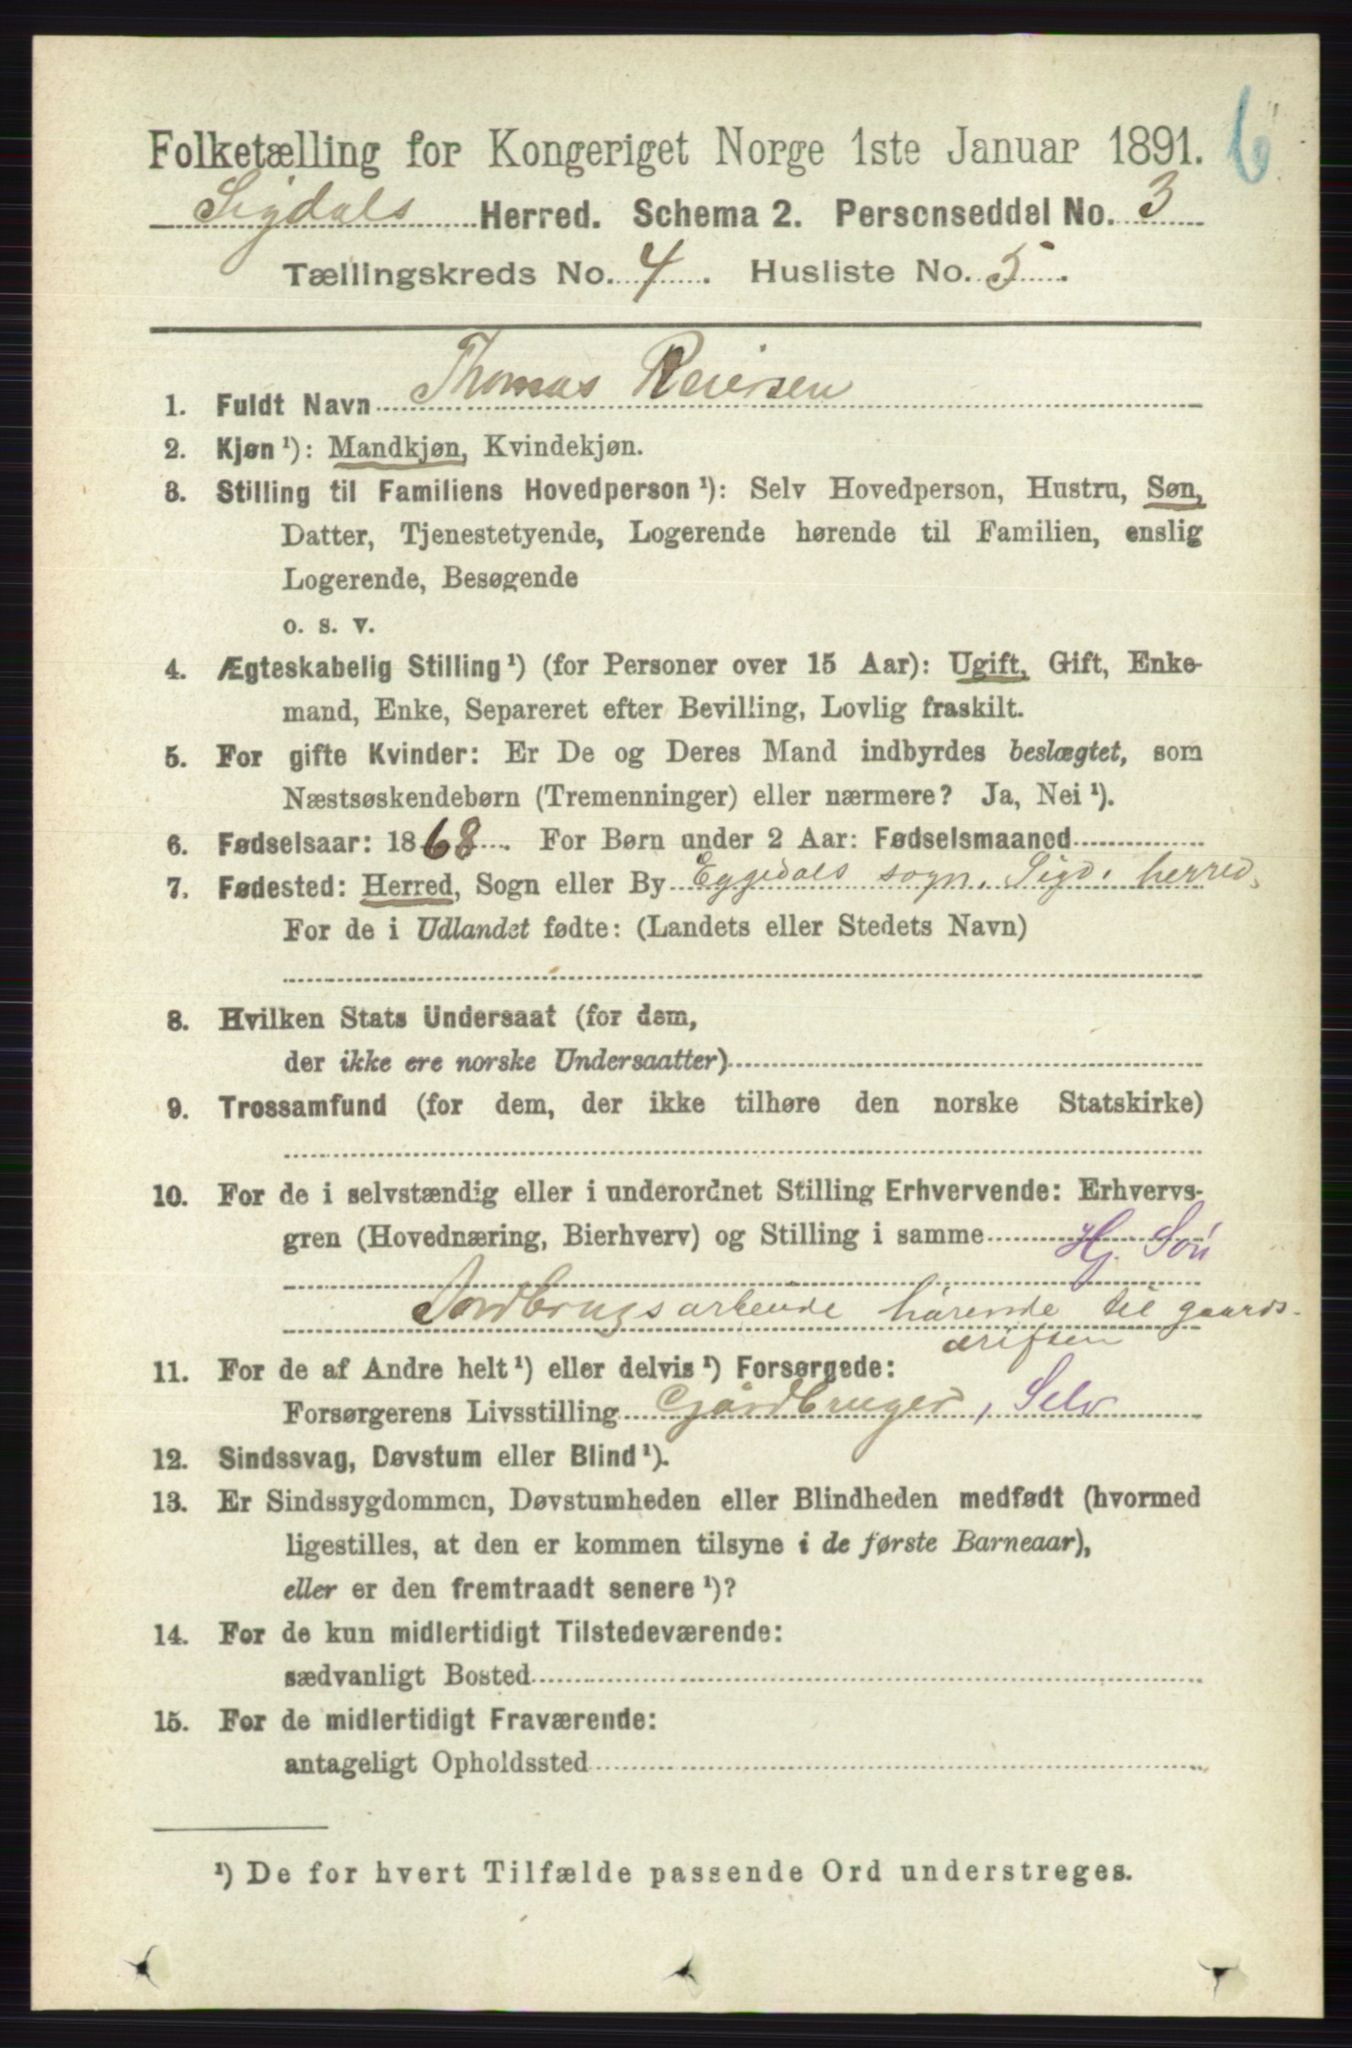 6
Folketælling for Kongeriget Norge 1ste Januar 1891.
Sigdals Herred. Schema 2. Personseddel No. 3
Tællingskreds No. 4. Husliste No. 5.
1. Fuldt Navn Thomas Reiersen
2. Kjøn ¹): Mandkjøn, Kvindekjøn.
3. Stilling til Familiens Hovedperson ¹): Selv Hovedperson, Hustru, Søn,
Datter, Tjenestetyende, Logerende hørende til Familien, enslig
Logerende, Besøgende
o. s. v.
4. Ægteskabelig Stilling ¹) (for Personer over 15 Aar): Ugift, Gift, Enke-
mand, Enke, Separeret efter Bevilling, Lovlig fraskilt.
5. For gifte Kvinder: Er De og Deres Mand indbyrdes beslægtet, som
Næstsøskendebørn (Tremenninger) eller nærmere? Ja, Nei ¹).
6. Fødselsaar: 1868. For Børn under 2 Aar: Fødselsmaaned
7. Fødested: Herred, Sogn eller By Eggedals sogn, Sigd. herred,
For de i Udlandet fødte: (Landets eller Stedets Navn)
8. Hvilken Stats Undersaat (for dem,
der ikke ere norske Undersaatter)
9. Trossamfund (for dem, der ikke tilhøre den norske Statskirke)
10. For de i selvstændig eller i underordnet Stilling Erhvervende: Erhvervs-
gren (Hovednæring, Bierhverv) og Stilling i samme Hj. Søn
Jordbrugsarbeide hørende til gaards-
driften
11. For de af Andre helt ¹) eller delvis ¹) Forsørgede:
Forsørgerens Livsstilling Gårdbruger, Selv
12. Sindssvag, Døvstum eller Blind ¹).
13. Er Sindssygdommen, Døvstumheden eller Blindheden medfødt (hvormed
ligestilles, at den er kommen tilsyne i de første Barneaar),
eller er den fremtraadt senere ¹)?
14. For de kun midlertidigt Tilstedeværende:
sædvanligt Bosted
15. For de midlertidigt Fraværende:
antageligt Opholdssted
¹) De for hvert Tilfælde passende Ord understreges.